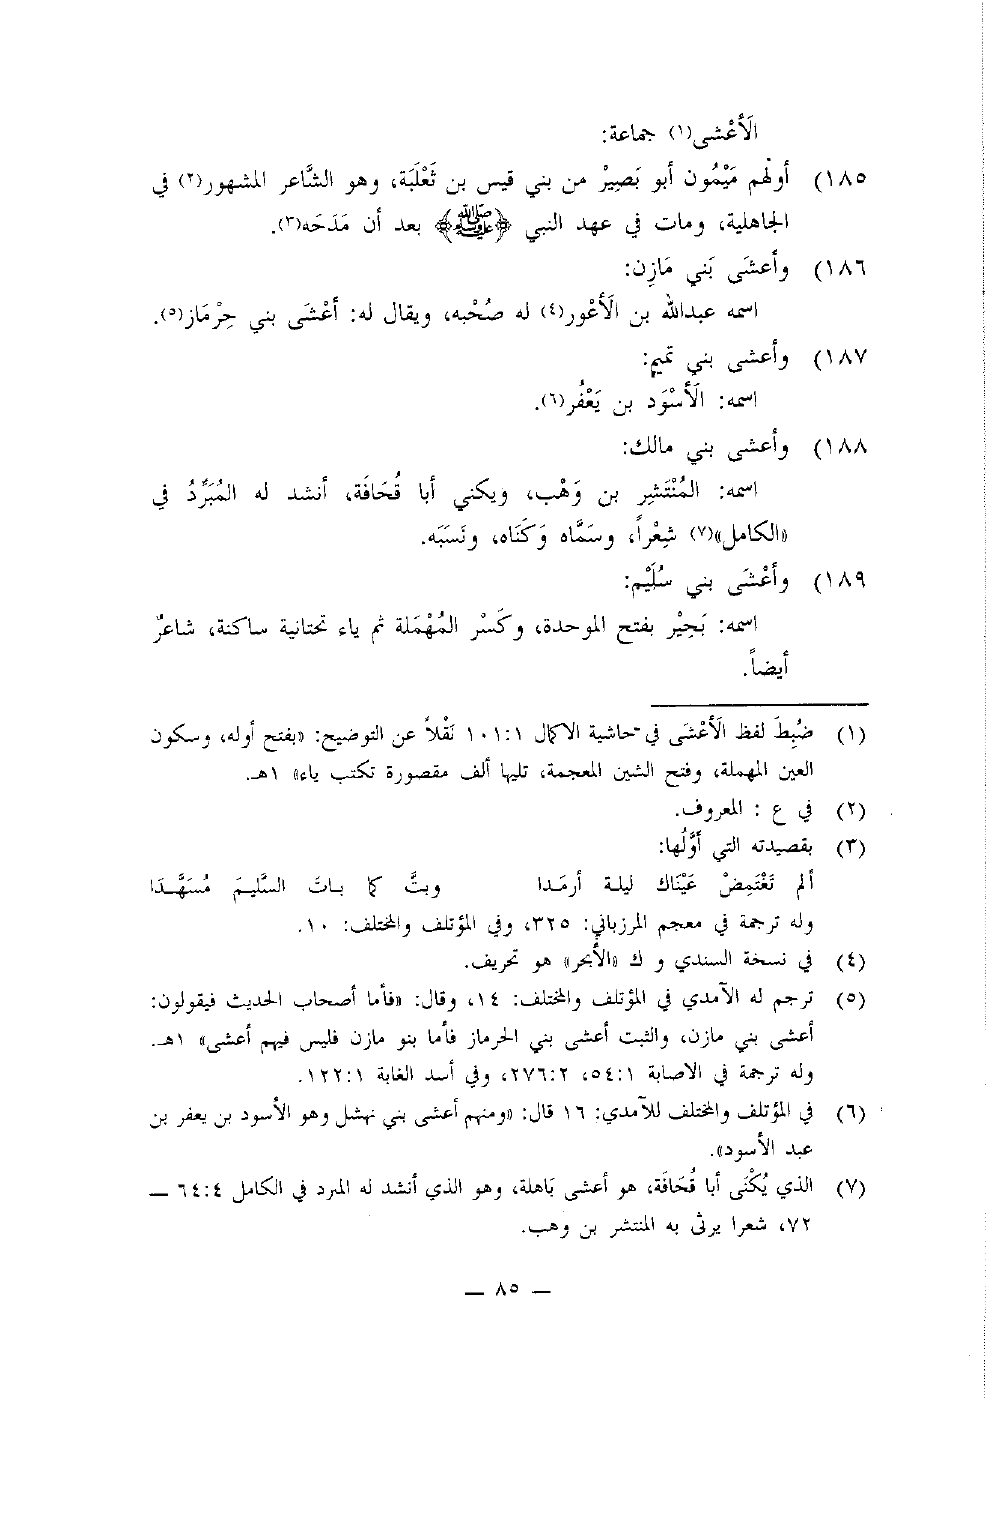 الَأعْشى(١) جماعة:
١٨٥) أولهم مَيْمُون أبو بَصِيرْ من بني قيس بن ثَعْلَبَة، وهو الشَّاعر المشهور(٢) في
الجاهلية، ومات في عهد النبي ﴿ﷺ﴾ بعد أن مَدَحَه(٣).
١٨٦) وأعشَى بَني مَازِن:
اسمه عبدالله بن الَأعْور(٤) له صُحْبه، ويقال له: أعْشَى بني حِرْمَاز(٥).
١٨٧) وأعشى بني تميم:
اسمه: الَأسْوَد بن يَعْفُر(٦).
١٨٨) وأعشى بني مالك:
اسمه: المُنْتَشِر بن وَهْب، ويكني أبا قُحَافَة، أنشد له المُبَرَّدُ في
«الكامل»(٧) شِعْراً، وسَمَّاه وَكَنَاه، ونَسَبَه.
١٨٩) وأعْشَى بني سُلَيْم:
اسمه: بَحِيْر بفتح الموحدة، وكَسْر المُهْمَلة ثم ياء تحتانية ساكنة، شاعرٌ
أيضاً.
(١) ضُبِطَ لفظ الَأعْشَى في حاشية الاكمال ١٠١:١ نَقْلاً عن التوضيح: «بفتح أوله، وسكون
العين المهملة، وفتح الشين المعجمة، تليها ألف مقصورة تكتب ياء» ١هـ.
(٢) في ع : المعروف.
(٣) بقصيدته التي أَوَّلُها:
ألم تَغْتَمِضْ عَيْنَاك ليلة أرمَدا وبتَّ كما باتَ السَّليمَ مُسَهَّدَا
وله ترجمة في معجم المرزباني: ٣٢٥، وفي المؤتلف والمختلف: ١٠.
(٤) في نسخة السندي و ك «الأبحر» هو تحريف.
(٥) ترجم له الآمدي في المؤتلف والمختلف: ١٤، وقال: «فأما أصحاب الحديث فيقولون:
أعشى بني مازن، والثبت أعشى بني الحرماز فأما بنو مازن فليس فيهم أعشى» ١هـ.
وله ترجمة في الاصابة ٥٤:١، ٢٧٦:٢، وفي أسد الغابة ١٢٢:١.
(٦) في المؤتلف والمختلف للآمدي: ١٦ قال: «ومنهم أعشى بني نهشل وهو الأسود بن يعفر بن
عبد الأسود».
(٧) الذي يُكْنَى أبا قُحَافَة، هو أعشى بَاهلة، وهو الذي أنشد له المبرد في الكامل ٦٤:٤ —
٧٢، شعرا يرثى به المنتشر بن وهب.
— ٨٥ —